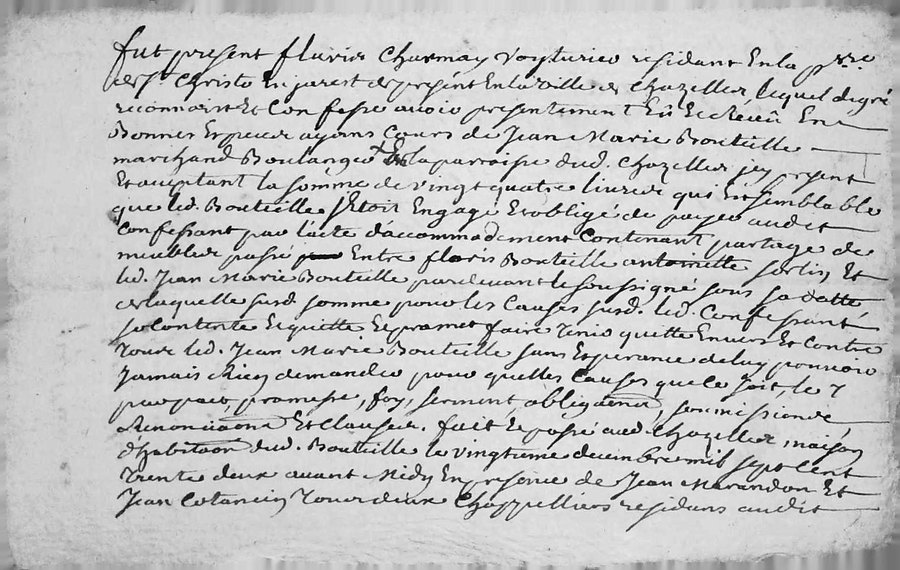 fut present fluris Charmay voyturier residant En la p.rre
de St. Christo En jarest de présent En la ville de Chazelles, lequel de gré
reconnoist Et Confesse avoir presentement Eü Et Receü En
Bonnes Especes ayans Cours de Jean Marie Bouteille
marchand Boulanger de la parroisse dud. Chazelles jcy present
Et aceptant la somme de vingt quatre livres qui Est semblable
que led. Bouteille s'Etoit Engagé Et obligé de payer audit
Confessant par l'acte d'accommodement Contenant partage de
meubles passé Entre floris Bouteille antoinette sorlin Et
led. Jean Marie Bouteille pardevant le soussigné sous sa datte
de laquelle susd. somme pour les Causes susd. led. Confessant
se Contente Et quitte Et promet faire tenir quitte Envers Et Contre
tous led. Jean Marie Bouteille sans Esperance de luy pouvoir
Jamais Rien demander pour quelles Causes que Ce soit,
par pact, promesse, foy, serment, obligaõns, soumissions
Renonciaõns Et Clauses. fait Et passé aud. Chazelles, maison
d'habitaõn dud. Bouteille le vingtieme decembre mil sept Cent
trente deux avant Midy En presence de Jean Marandon Et
Jean Cotancin tous deux Chappelliers residans audit